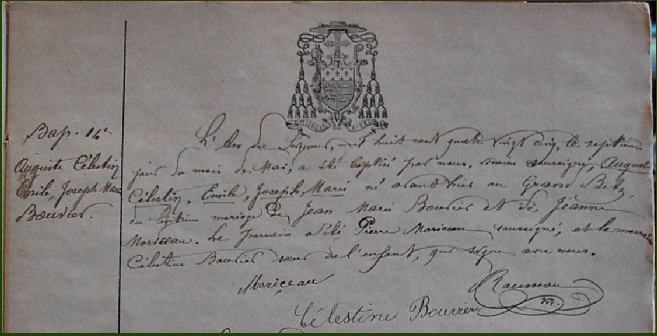 Bap. 14e
Auguste Célestin
Emile, Joseph Marie
Bouvier.
L'An du Seigneur, mil huit cent quatre vingt dix, le septième
jour du mois de Mai, a été baptisé par nous, vicaire soussigné, Auguste
Célestin, Emile, Joseph, Marie né avant hier au Grand
du légitime mariage de Jean Marie Bouvier et de Jeanne
Moriceau. Le Parrain a été Pierre Moriceau soussigné, et la marraine
Célestine Bouvier sœur de l'enfant, qui signe avec nous.
Moriceau
Célestine Bouvier